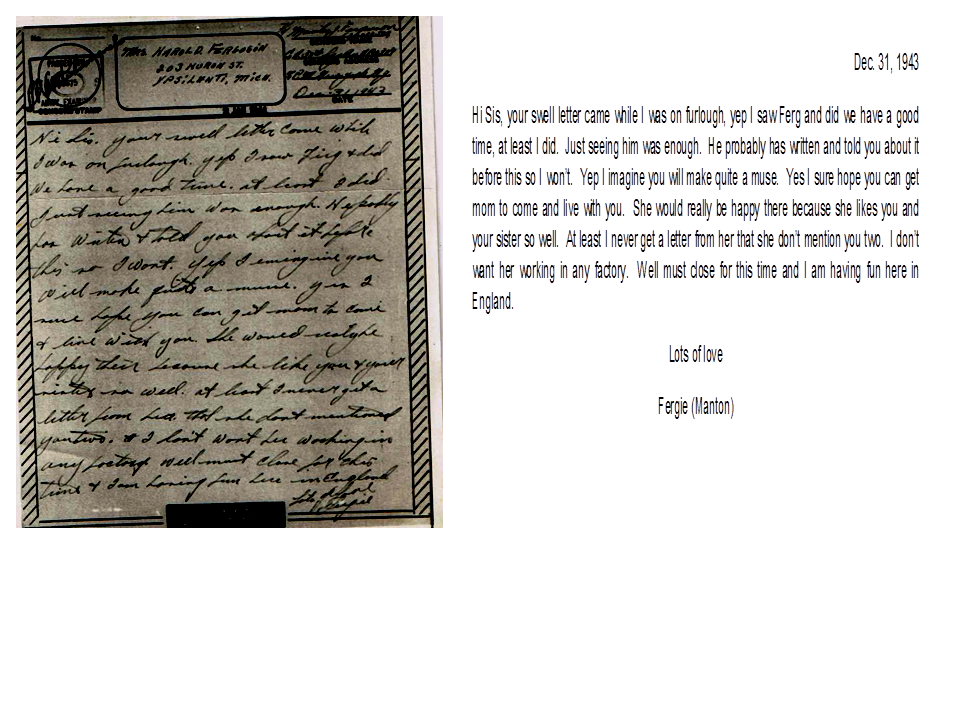 No.
Mrs. HAROLD. FERGUSON
203 HURON ST.
YPSILANTI, MICH.
Dec. 31, 1943
DATE
Hi Sis. your swell letter came while
I was on furlough. yep I saw Ferg & did
we have a good time. at least I did.
Just seeing him was enough. He probly
has written & told you about it before
this so I wont. yep I emengine you
will make quite a muse. yes I
sure hope you can get mom to come
& live with you. She would realy be
happy their because she like you & your
sister so well. at least I never get a
letter from her. that she dont mentioned
you two. & I don't want her working in
any factory. well must close for this
time & I am having fun here in England
Lots of love
Fergie
Dec. 31, 1943
Hi Sis, your swell letter came while I was on furlough, yep I saw Ferg and did we have a good
time, at least I did. Just seeing him was enough. He probably has written and told you about it
before this so I won't. Yep I imagine you will make quite a muse. Yes I sure hope you can get
mom to come and live with you. She would really be happy there because she likes you and
your sister so well. At least I never get a letter from her that she don't mention you two. I don't
want her working in any factory. Well must close for this time and I am having fun here in
England.
Lots of love
Fergie (Manton)